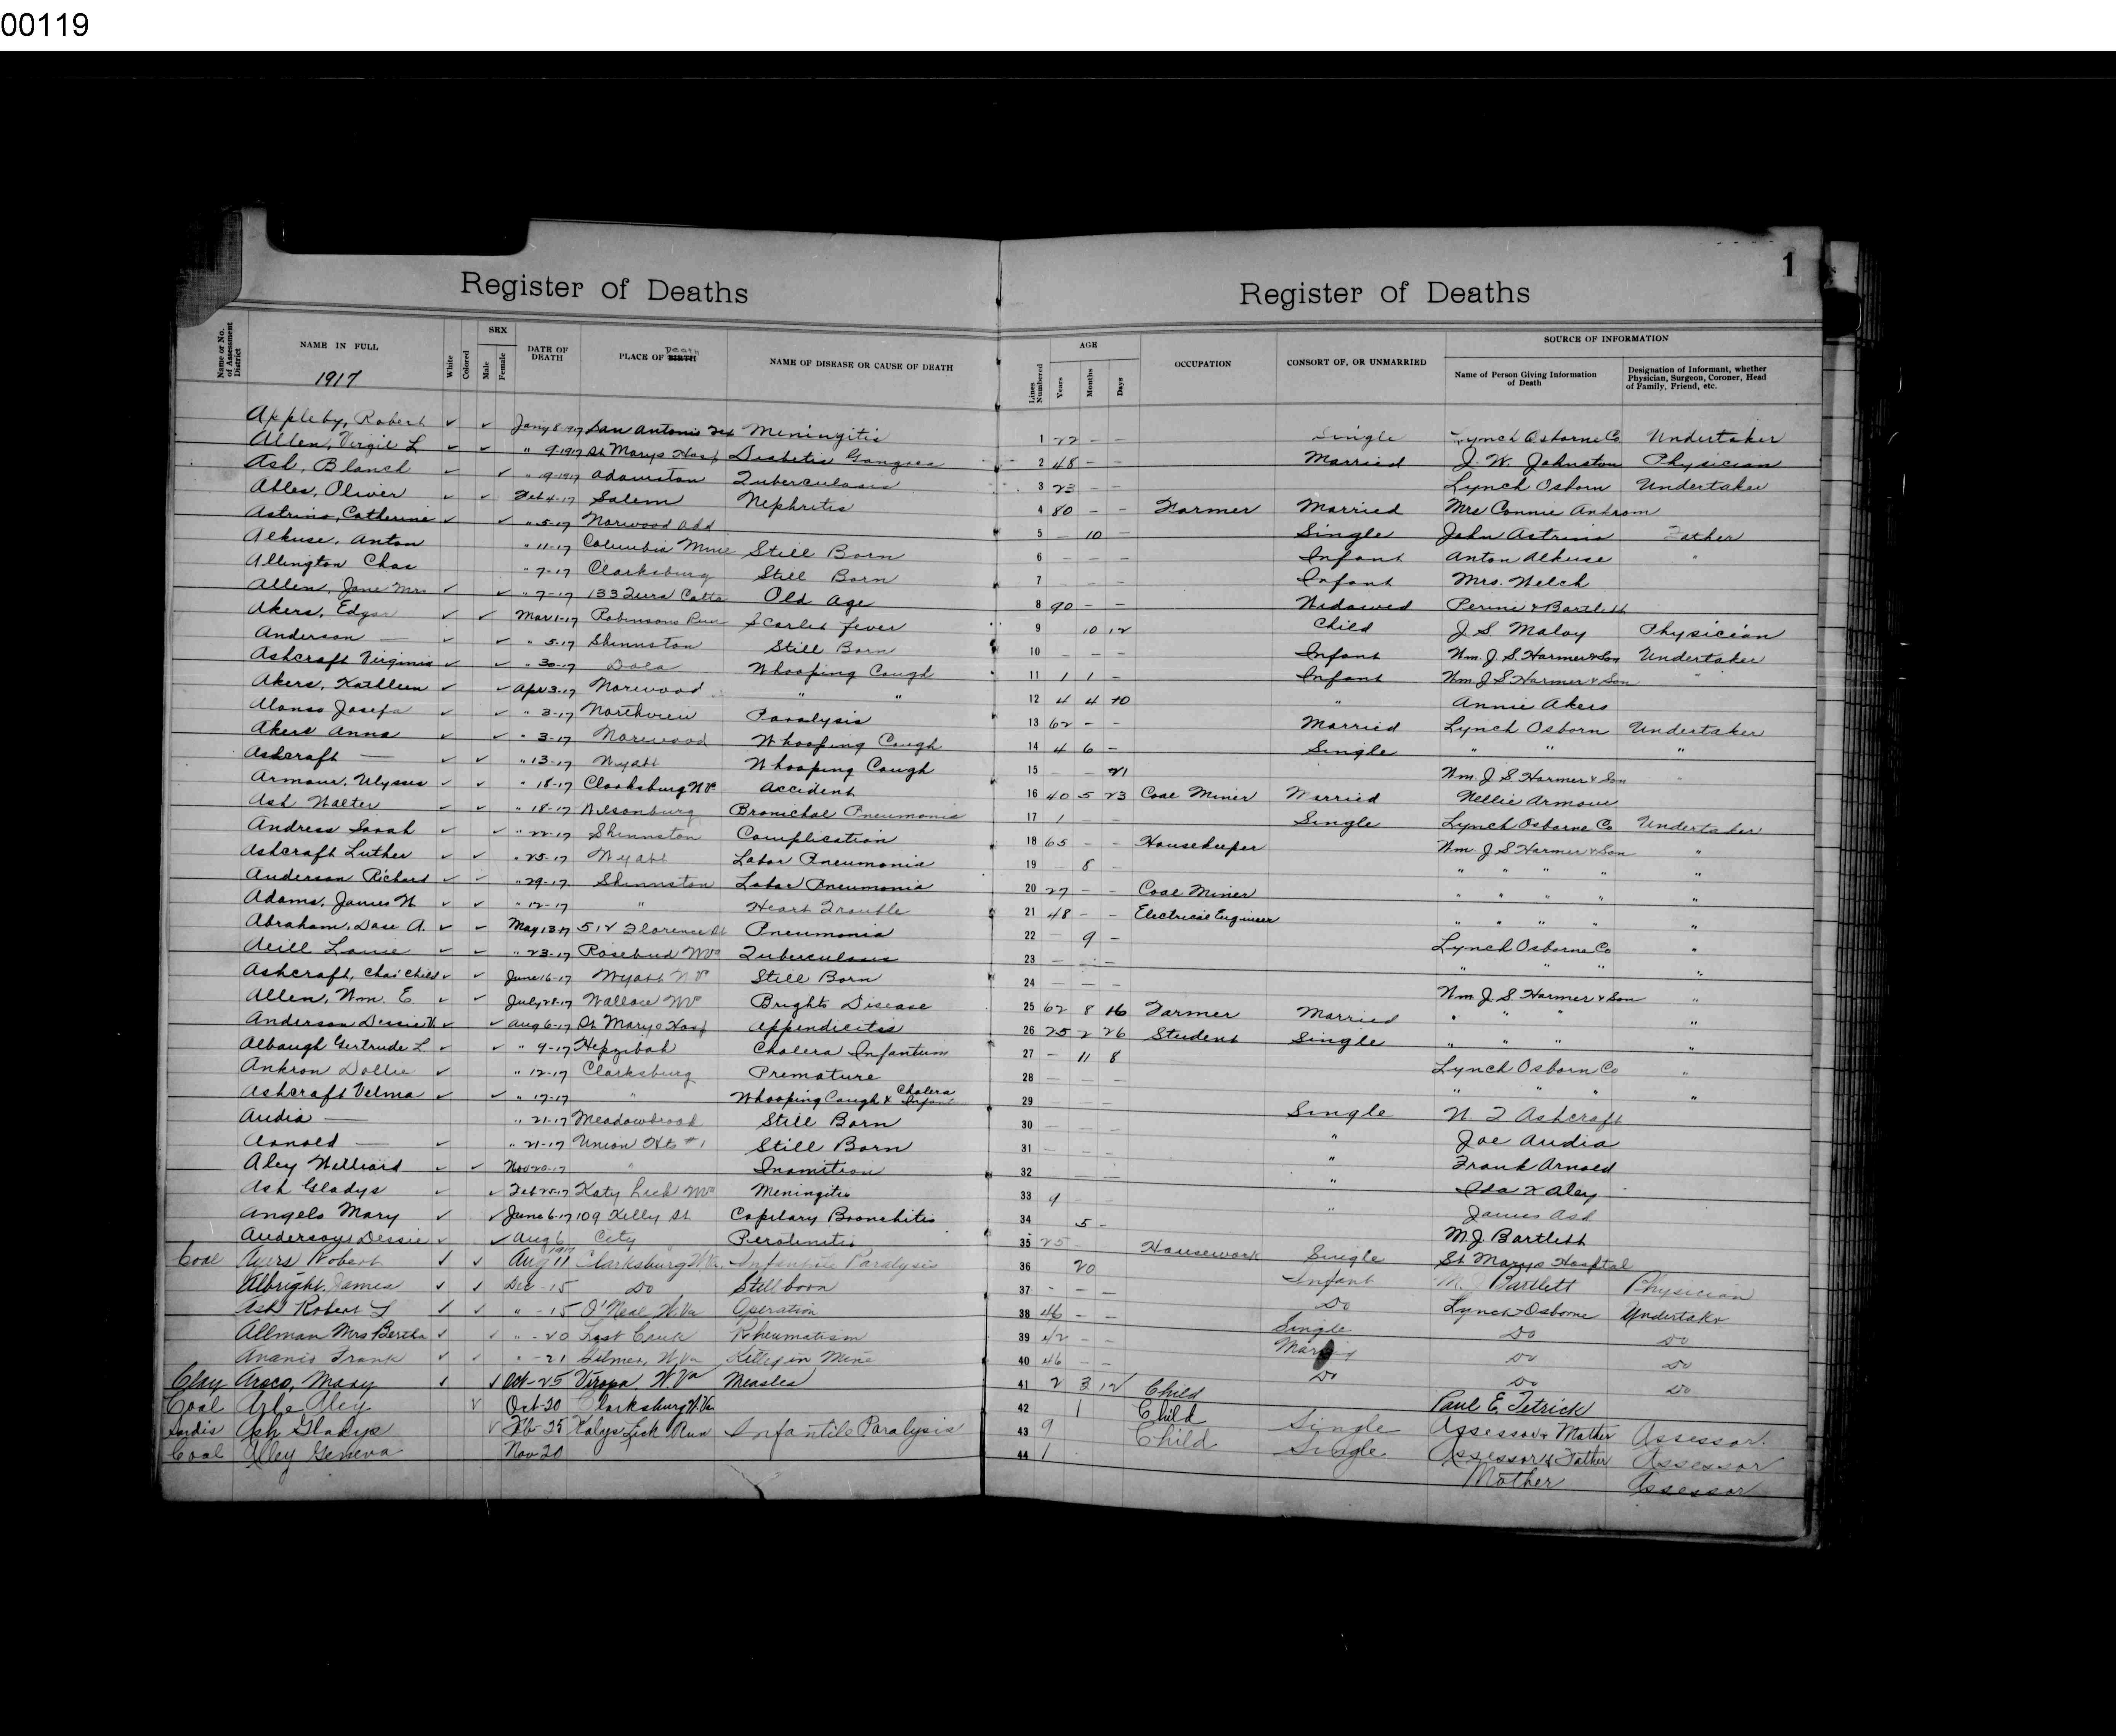 00119
1
Register of Deaths Register of Deaths
Name or No. of Assessment District
NAME IN FULL
1917
White
Colored
SEX
Male
Female
DATE OF DEATH
PLACE OF BIRTH Death
NAME OF DISEASE OR CAUSE OF DEATH
Lines Numbered
AGE
Years
Months
Days
OCCUPATION
CONSORT OF, OR UNMARRIED
SOURCE OF INFORMATION
Name of Person Giving Information of Death
Designation of Informant, whether Physician, Surgeon, Coroner, Head of Family, Friend, etc.
Appleby, Robert ✓ ✓ Jany 8-17 San Antonio Tex Meningitis 1 22 – – Single Lynch Osborne Co Undertaker
Allen, Virgil L ✓ ✓ " 9-1917 St Marys Hosp Diabetis 2 48 – – Married J. W. Johnston Physician
Ash, Blanch ✓ ✓ " 9-1917 Adamston Tuberculosis 3 23 – – Lynch Osborn Undertaker
Ables, Oliver ✓ ✓ Feb 4-17 Salem Nephritis 4 80 – – Farmer Married Mrs Connie Antrom
Astrino, Catherine ✓ ✓ " 5-17 Norwood Add 5 – 10 – Single John Astrino Father
Alkuse, Anton " 11-17 Columbia Mine Still Born 6 – – – Infant Anton Alkuse "
Allington Chas " 7-17 Clarksburg Still Born 7 – – – Infant Mrs. Welch
Allen, Jane Mrs ✓ ✓ " 7-17 133 Old Age 8 90 – – Widowed Perine & Bartlett
Akers, Edgar ✓ ✓ Mar 1-17 Robinsons Run Scarlet fever 9 10 12 Child J. S. Maloy Physician
Anderson — ✓ ✓ " 5-17 Shinnston Still Born 10 – – – Infant Wm. J. S. Harmer & Son Undertaker
Ashcraft Virginia ✓ ✓ " 30-17 Dola Whooping Cough 11 1 1 – Infant Wm. J S Harmer & Son "
Akers, Kathleen ✓ ✓ Apr 3-17 Norwood " " 12 4 4 10 " Annie Akers
Alonso Josefa ✓ ✓ " 3-17 Northview Paralysis 13 62 – – Married Lynch Osborn Undertaker
Akers Anna ✓ ✓ " 3-17 Norwood Whooping Cough 14 4 6 – Single " " "
Ashcraft — ✓ ✓ " 13-17 Wyatt Whooping Cough 15 – – 21 Wm. J S Harmer & Son "
Armour, Ulysses ✓ ✓ " 18-17 Clarksburg W Va Accident 16 40 5 23 Coal Miner Married Nellie Armour
Ash Walter ✓ ✓ " 18-17 Wilsonburg Bronichal Pneumonia 17 1 – – Single Lynch Osborne Co Undertaker
Andress Sarah ✓ ✓ " 22-17 Shinnston Complication 18 65 – – Housekeeper Wm. J S Harmer & Son "
Ashcraft Luther ✓ ✓ " 25-17 Wyatt Lobar Pneumonia 19 8 – " " " " "
Anderson Richard ✓ ✓ " 29-17 Shinnston Lobar Pneumonia 20 27 – – Coal Miner " " " " "
Adams, James W ✓ ✓ " 12-17 " Heart Trouble 21 48 – – Electrical Engineer " " " " "
Abraham, Dase A. ✓ ✓ May 13-17 512 Florence St Pneumonia 22 – 9 – Lynch Osborne Co "
✓ ✓ " 23-17 Rosebud W Va Tuberculosis 23 – – – " " " "
Ashcraft, Chas' Child ✓ ✓ June 16-17 Wyatt W Va Still Born 24 – – – Wm. J. S. Harmer & Son "
Allen, Wm. E ✓ ✓ July 28-17 Wallace W Va Brights Disease 25 62 8 16 Farmer Married " " " "
Anderson Dessie V. ✓ ✓ Aug 6-17 St Marys Hosp Appendicitis 26 25 2 26 Student Single " " " "
Albaugh Gertrude L ✓ ✓ " 9-17 Hepzibah Cholera Infantum 27 – 11 8 Lynch Osborn Co "
Ankron Dollie ✓ " 12-17 Clarksburg Premature 28 – – – " " " "
Ashcraft Velma ✓ ✓ " 17-17 " Whooping Cough & Cholera Infant 29 – – – Single N. T Ashcraft
Audia — " 21-17 Meadowbrook Still Born 30 – – – " Joe Audia
Arnold — ✓ " 21-17 Union Hts #1 Still Born 31 – – – " Frank Arnold
Aley Williard ✓ ✓ Nov 20-17 " Inanition 32 – – " Ida Aley
Ash Gladys ✓ ✓ Feb 25-17 Katy Lick W Va Meningitis 33 9 " James Ash
Angelo Mary ✓ ✓ June 6-17 109 Kelly St Capilary Bronchitis 34 5 – M. J. Bartlett
Anderson Dessie ✓ ✓ Aug 6 City 35 25 Housework Single St Marys Hospital
Coal Ayers Robert ✓ ✓ Aug 11 1917 Clarksburg W Va. Infantile Paralysis 36 20 Infant M. J Bartlett Physician
Albright, James ✓ ✓ Dec -15 Do Stillborn 37 – – – Do Lynch-Osborne Undertaker
Ash Robert L ✓ ✓ " -15 O'Neal W. Va Operation 38 46 – – Single Do Do
Allman Mrs Bertha ✓ ✓ " -20 Lost Creek Rheumatism 39 42 – – Married Do Do
Ananis Frank ✓ ✓ " -21 Gilmer, W. Va Killed in Mine 40 46 – – Do Do Do
Clay Aroco, Mary ✓ ✓ Oct-25 Viropa, W. Va Measles 41 2 3 12 Child Paul E. Tetrick
Coal Arbe Aley ✓ Oct-20 Clarksburg W. Va 42 1 Child Single Assessor & Mother Assessor.
Sardis Ash Gladys ✓ Feb-25 Katys Lick Run Infantile Paralysis 43 9 Child Single Assessor & Father Assessor
Coal Aley Geneva Nov 20 44 1 Mother Assessor